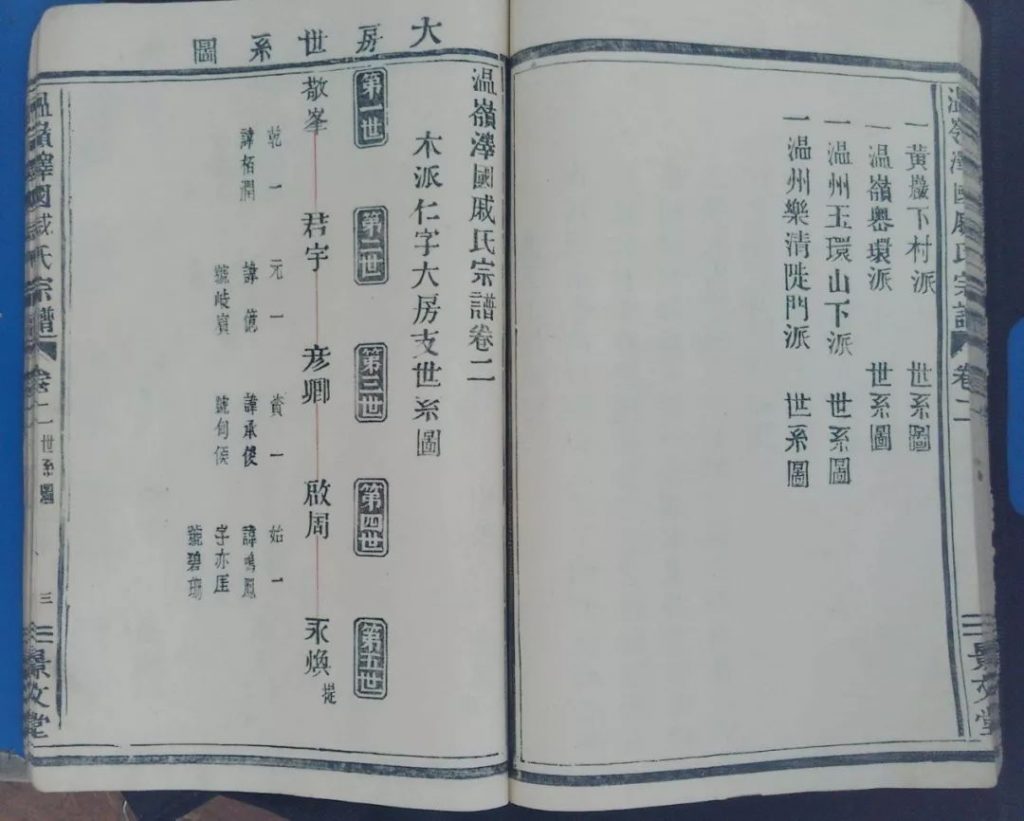 溫嶺澤國戚氏宗譜 卷二
景文堂
一黃巖下村派 世系圖
一溫嶺嶴環派 世系圖
一溫州玉環山下派 世系圖
一溫州樂清陡門派 世系圖
大房世系圖
溫嶺澤國戚氏宗譜卷二
木派仁字大房支世系圖
第一世
第二世
第三世
第四世
第五世
敬峯
君宇
彦卿
啟周
永煥 提
乾一
諱栢澗
元一
諱億
號岐賓
資一
諱承俊
號旬侯
始一
諱鳴鳳
字亦厓
號碧珊
溫嶺澤國戚氏宗譜 卷二 世系圖 三
景文堂